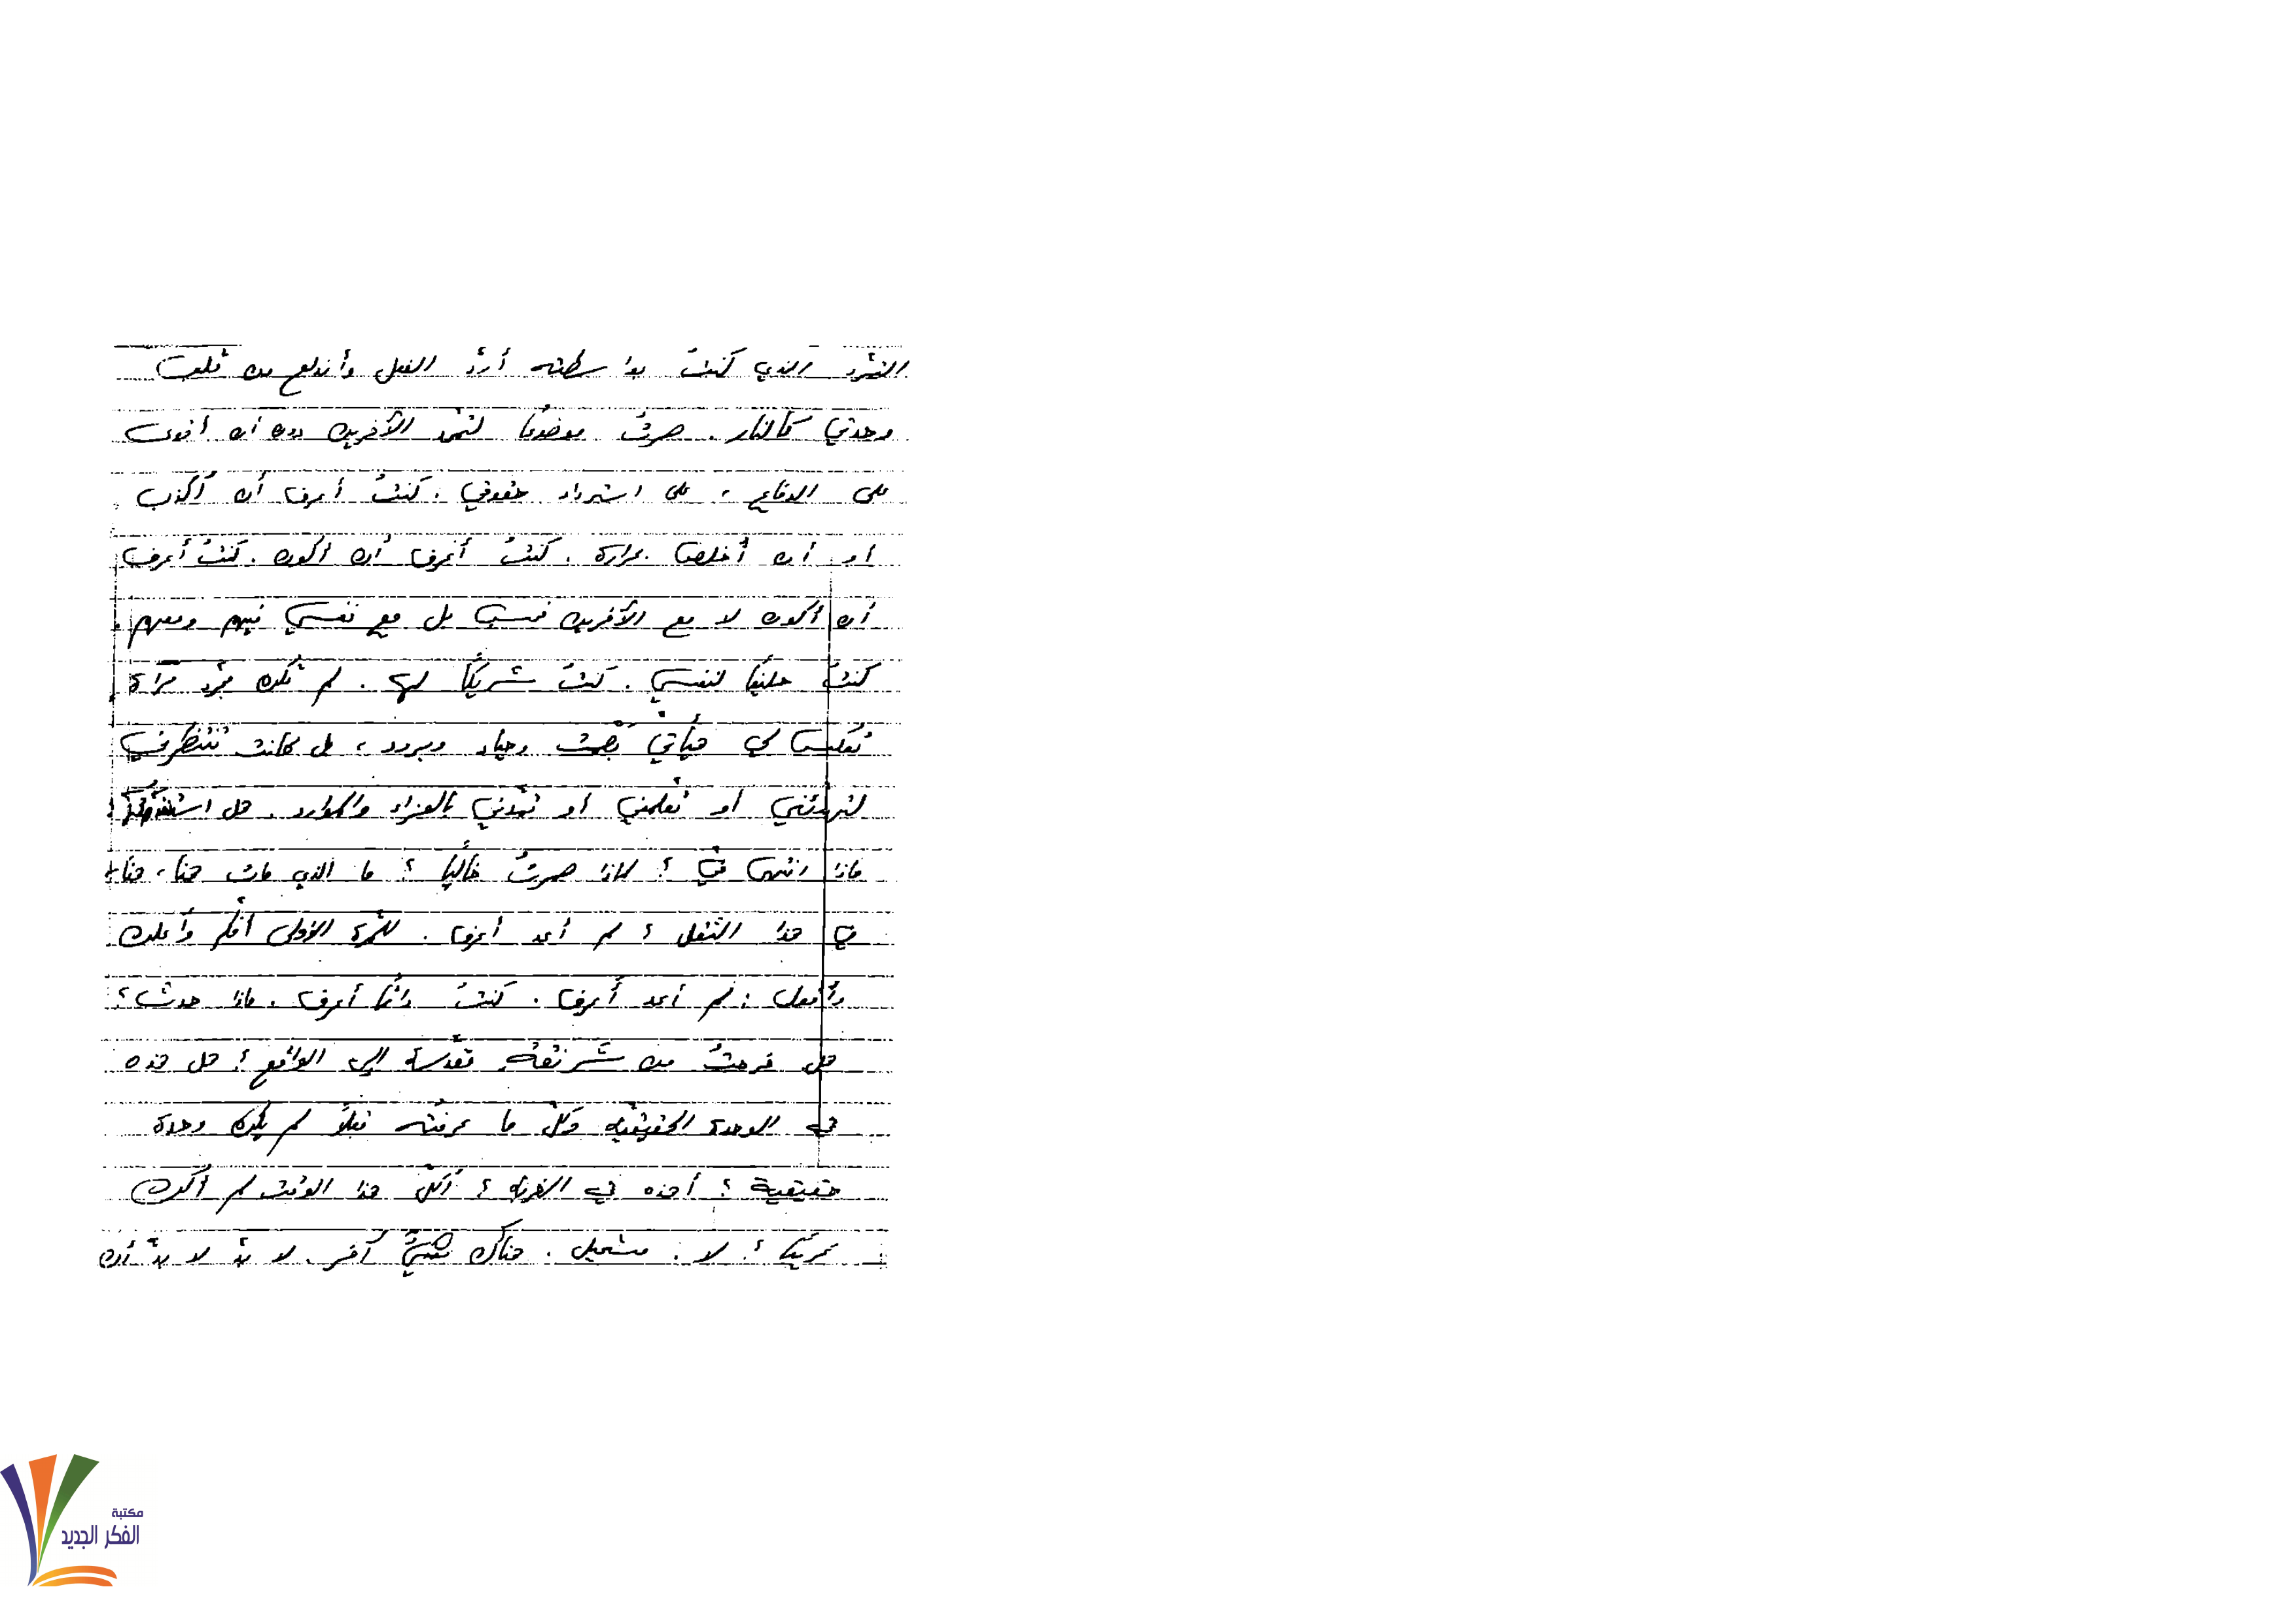 التمرّد الذي كنتُ بواسطته أردّ الفعل وأندلع من قلب
وحدتي كالنار. صرتُ موضوعًا لتمرّد الآخرين دون أن أقوى
على الدفاع، على استرداد حقوقي. كنتُ أعرف أن أكذب
أو أن أخلص بحرارة. كنتُ أعرف أن أكون. كنتُ أعرف
أن أكون لا مع الآخرين فحسب بل مع نفسي فيهم ومعهم.
كنتُ حليفًا لنفسي. كنتُ شريكًا لها. لم تكن مجرّد مرآة
تعكس لي حياتي بصمت وحياد وبرود، بل كانت تنتظرني
لتهدئني أو تعلمني أو تمدّني بالعزاء والموارد. هل
ماذا انتهى فيّ؟ لماذا صرتُ خاليًا؟ ما الذي مات هنا، هنا،
في هذا الثقل؟ لم أعد أعرف. للمرّة الأولى أفكّر وأعلن
وأقول: لم أعد أعرف. كنتُ دائمًا أعرف. ماذا حدث؟
هل خرجتُ من شرنقةٍ مقدّسة إلى الواقع؟ هل هذه
هي الوحدة الحقيقيّة وكلّ ما عرفته قبلاً لم يكن وحدة
حقيقية؟ أهذه هي الغربة؟ أكلّ هذا الوقت لم أكن
غريبًا؟ لا. مستحيل. هناك شيءٌ آخر. لا بدّ لا بدّ أن
مكتبة
الفكر الجديد